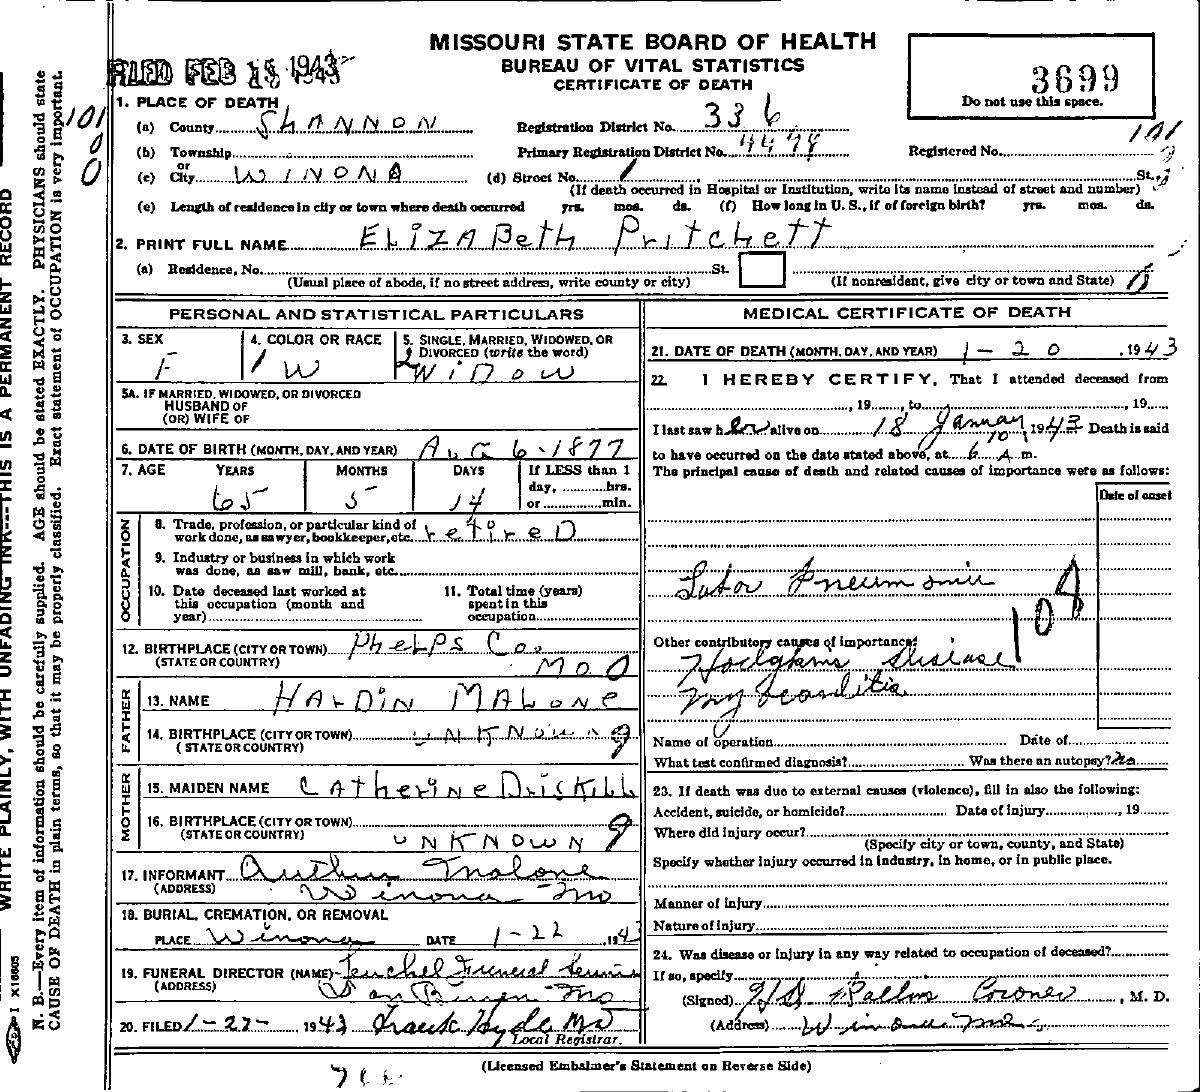 MISSOURI STATE BOARD OF HEALTH
BUREAU OF VITAL STATISTICS
CERTIFICATE OF DEATH
FILED FEB 15 1943
3699
Do not use this space.
1. PLACE OF DEATH
(a) County SHANNON Registration District No. 336
(b) Township Primary Registration District No. 4478 Registered No.
101
0
0
or
(c) City WINONA (d) Street No. St.
(If death occurred in Hospital or Institution, write its name instead of street and number)
(e) Length of residence in city or town where death occurred yrs. mos. ds. (f) How long in U. S., if of foreign birth? yrs. mos. ds.
2. PRINT FULL NAME ELIZABeth Pritchett
(a) Residence, No. St.
(Usual place of abode, if no street address, write county or city) (If nonresident, give city or town and State)
PERSONAL AND STATISTICAL PARTICULARS
3. SEX F
4. COLOR OR RACE W
5. SINGLE, MARRIED, WIDOWED, OR DIVORCED (write the word) WIDOW
5A. IF MARRIED, WIDOWED, OR DIVORCED
HUSBAND OF
(OR) WIFE OF
6. DATE OF BIRTH (MONTH, DAY, AND YEAR) AUG 6-1877
7. AGE YEARS MONTHS DAYS If LESS than 1
65 5 14 day, hrs.
or min.
OCCUPATION
8. Trade, profession, or particular kind of
work done, as sawyer, bookkeeper, etc. retireD
9. Industry or business in which work
was done, as saw mill, bank, etc.
10. Date deceased last worked at
this occupation (month and
year)
11. Total time (years)
spent in this
occupation
12. BIRTHPLACE (CITY OR TOWN) PhELPS Co.
(STATE OR COUNTRY) Mo 0
FATHER
13. NAME HARDIN MALONE
14. BIRTHPLACE (CITY OR TOWN) UNKNOWN 9
(STATE OR COUNTRY)
MOTHER
15. MAIDEN NAME CATHERINE DRISKILL
16. BIRTHPLACE (CITY OR TOWN)
(STATE OR COUNTRY) UNKNOWN 9
17. INFORMANT Arthur Malone
(ADDRESS) Winona Mo
18. BURIAL, CREMATION, OR REMOVAL
PLACE Winona DATE 1-22, 1943
19. FUNERAL DIRECTOR (NAME) Funeral Service
(ADDRESS) Van Buren Mo
20. FILED 1-27- 1943 Frank Hyde MD
Local Registrar.
MEDICAL CERTIFICATE OF DEATH
21. DATE OF DEATH (MONTH, DAY, AND YEAR) 1-20, 1943
22. I HEREBY CERTIFY, That I attended deceased from
, 19 , to , 19
I last saw her alive on 18 January, 1943 Death is said
to have occurred on the date stated above, at 6 10 A m.
The principal cause of death and related causes of importance were as follows:
Date of onset
Lobar Pneumonia
108
Other contributory causes of importance:
Hodgkins Disease
Myocarditis
Name of operation Date of
What test confirmed diagnosis? Was there an autopsy? No
23. If death was due to external causes (violence), fill in also the following:
Accident, suicide, or homicide? Date of injury , 19
Where did injury occur?
(Specify city or town, county, and State)
Specify whether injury occurred in industry, in home, or in public place.
Manner of injury
Nature of injury
24. Was disease or injury in any way related to occupation of deceased?
If so, specify
(Signed) Coroner, M. D.
(Address) Winona Mo.
(Licensed Embalmer's Statement on Reverse Side)
WRITE PLAINLY, WITH UNFADING INK---THIS IS A PERMANENT RECORD
N. B.—Every item of information should be carefully supplied. AGE should be stated EXACTLY. PHYSICIANS should state
CAUSE OF DEATH in plain terms, so that it may be properly classified. Exact statement of OCCUPATION is very important.
I X16605